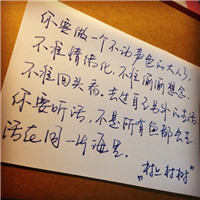 你要做一个不动声色的大人了。
不准情绪化，不准偷偷想念，
不准回头看。去过自己另外的生活。
你要听话，不是所有的鱼都会生
活在同一片海里。
"村上春树"